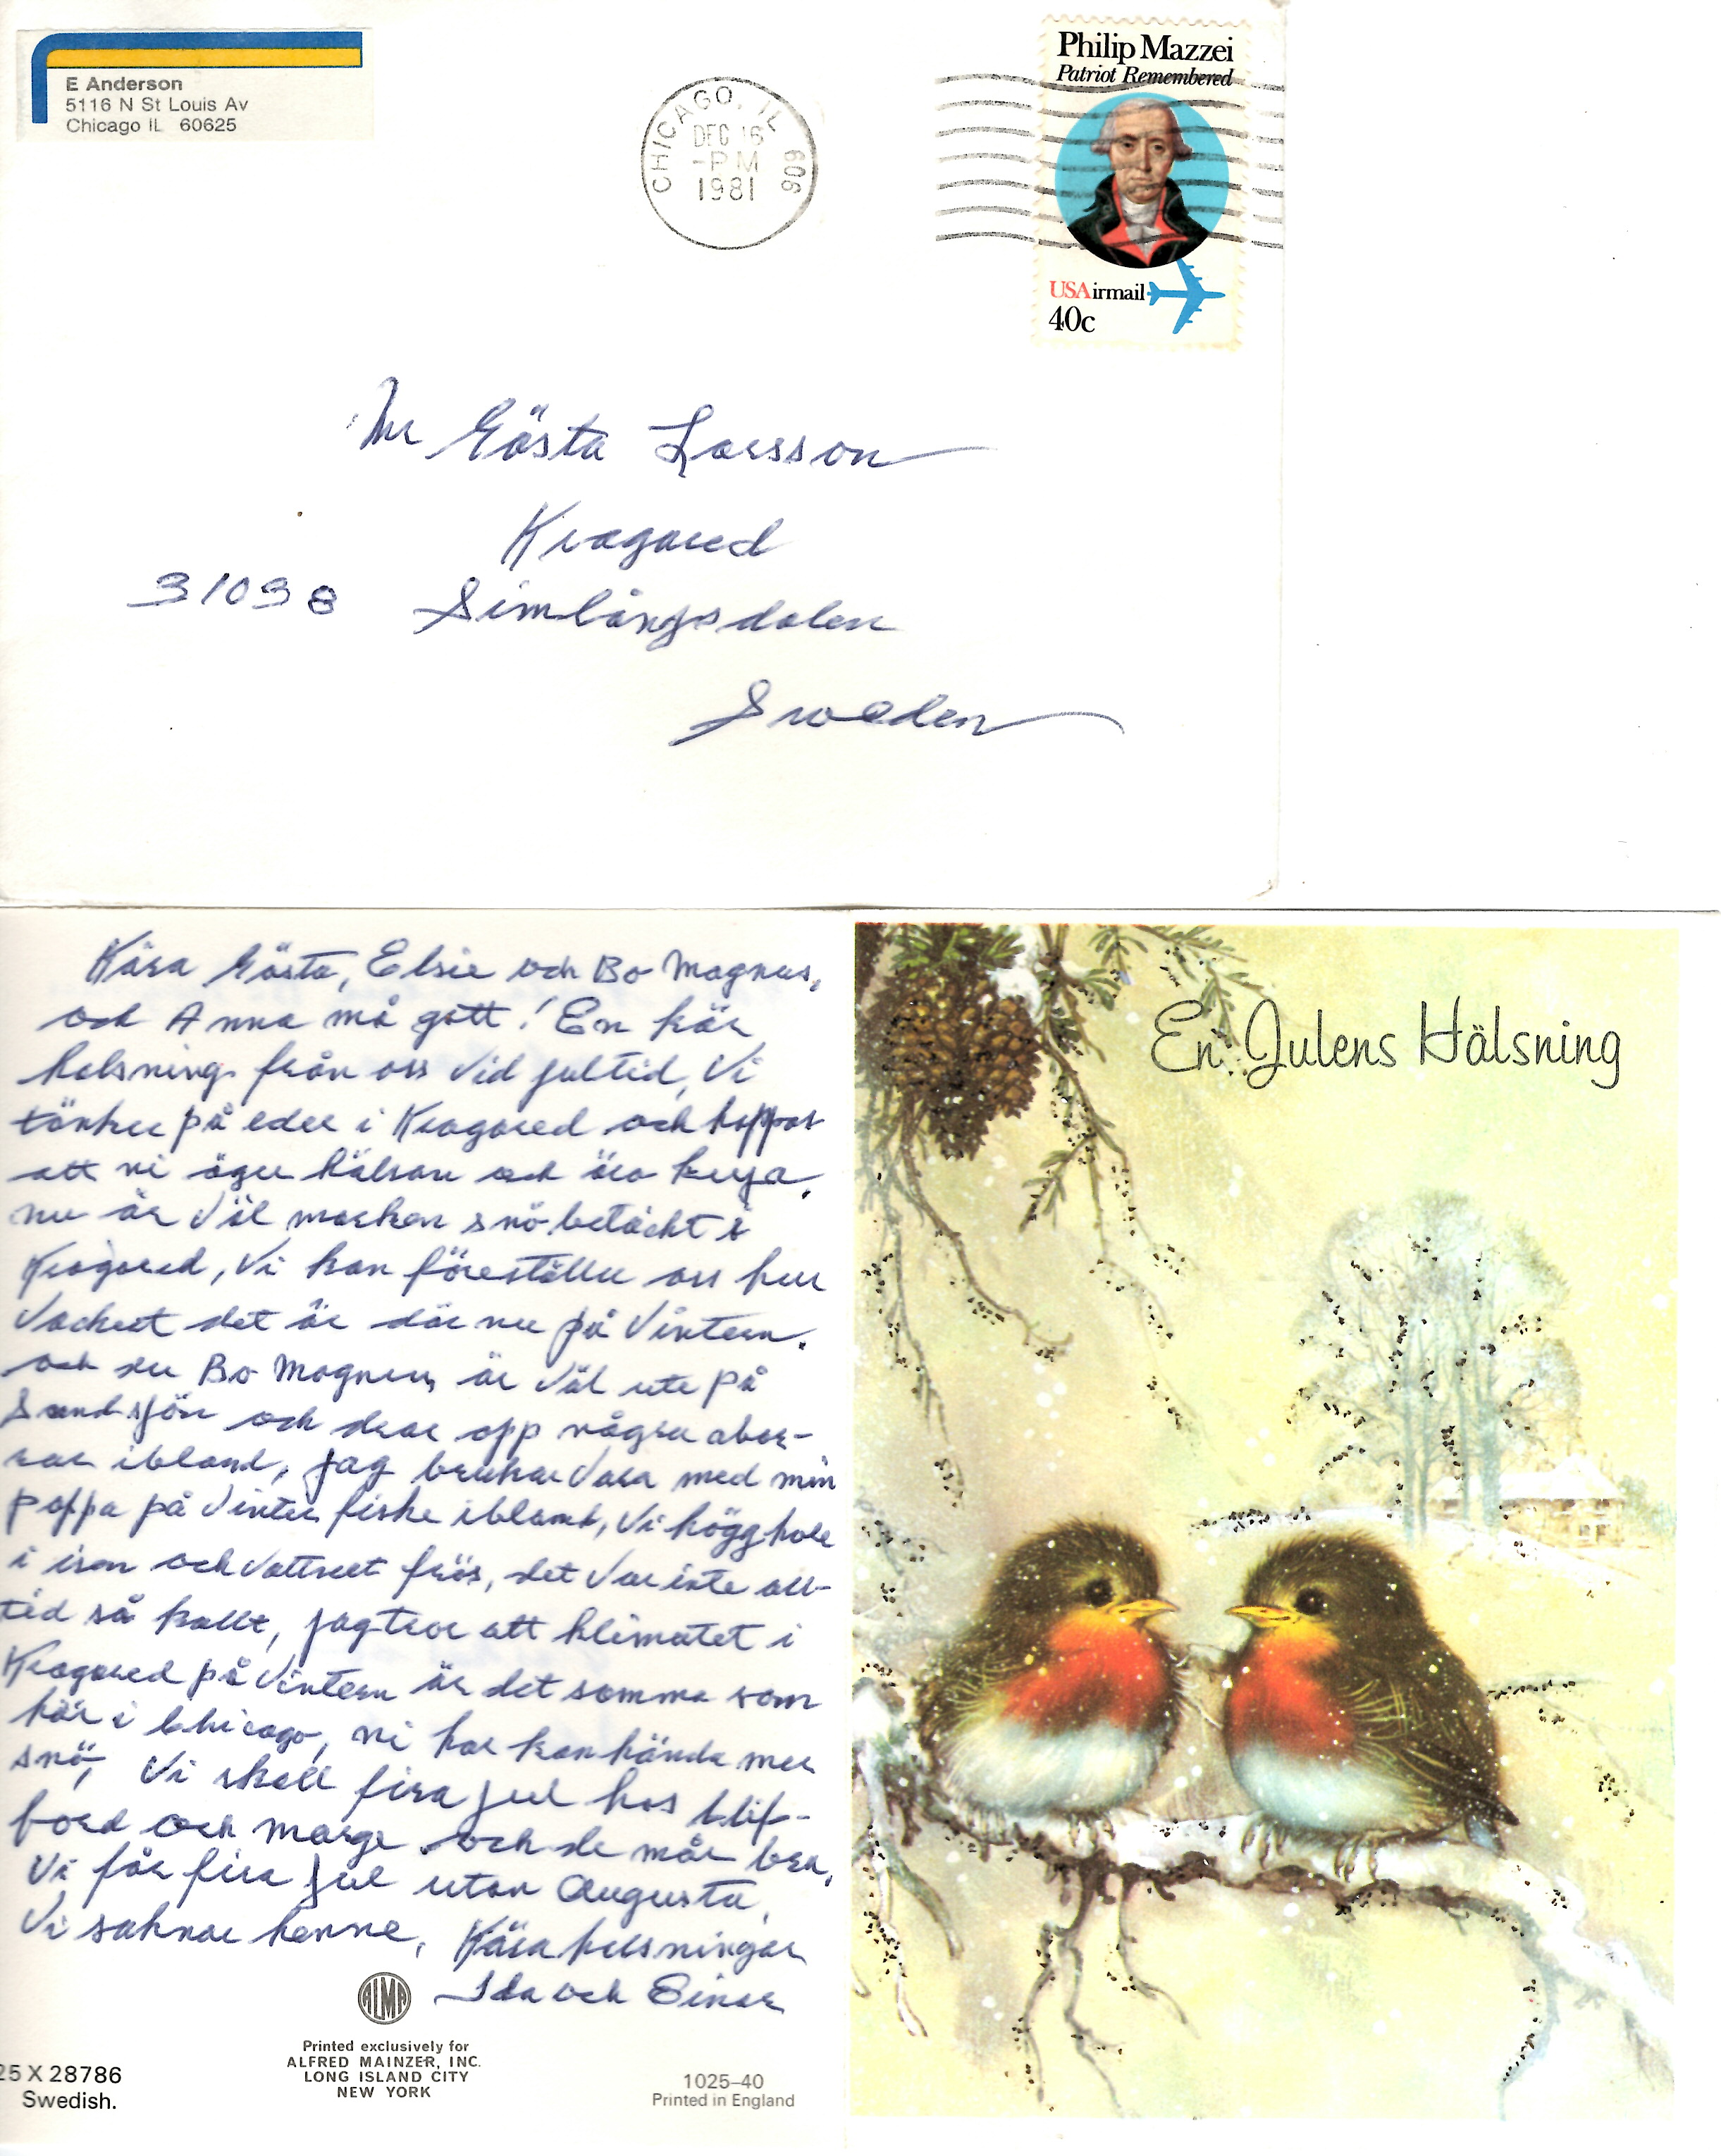 E Anderson
5116 N St Louis Av
Chicago IL 60625
CHICAGO, IL 606
DEC 16
-PM
1981
Philip Mazzei
Patriot Remembered
USAirmail
40c
Mr Gösta Larsson
Kragared
31038 Simlångsdalen
Sweden
Kära Gösta, Elsie och Bo Magnus,
och Anna må gott! En kär
halsning från oss vid jultid, Vi
tänker på eder i Kragared och hoppas
att ni äger hälsan och äro krya.
nu är väl marken snö betäckt i
Kragared, Vi kan föreställa oss hur
vackert det är där nu på Vintern.
och du Bo Magnus är väl ute på
Sandsjön och drar opp några abor-
rar ibland, jag brukar vara med min
pappa på vinter fiske ibland, Vi högg hole
i isen och vattnet frös, det var inte all-
tid så kallt, jag tror att klimatet i
Kragared på Vintern är det samma som
här i Chicago, ni har kan hända mer
snö, Vi skall fira jul hos Clif-
ford och Marge och de mår bra,
Vi får fira jul utan Augusta,
Vi saknar henne, Kära helsningar
Ida och Einar
ALMA
Printed exclusively for
ALFRED MAINZER, INC.
LONG ISLAND CITY
NEW YORK
25 X 28786
Swedish.
1025–40
Printed in England
En Julens Hälsning